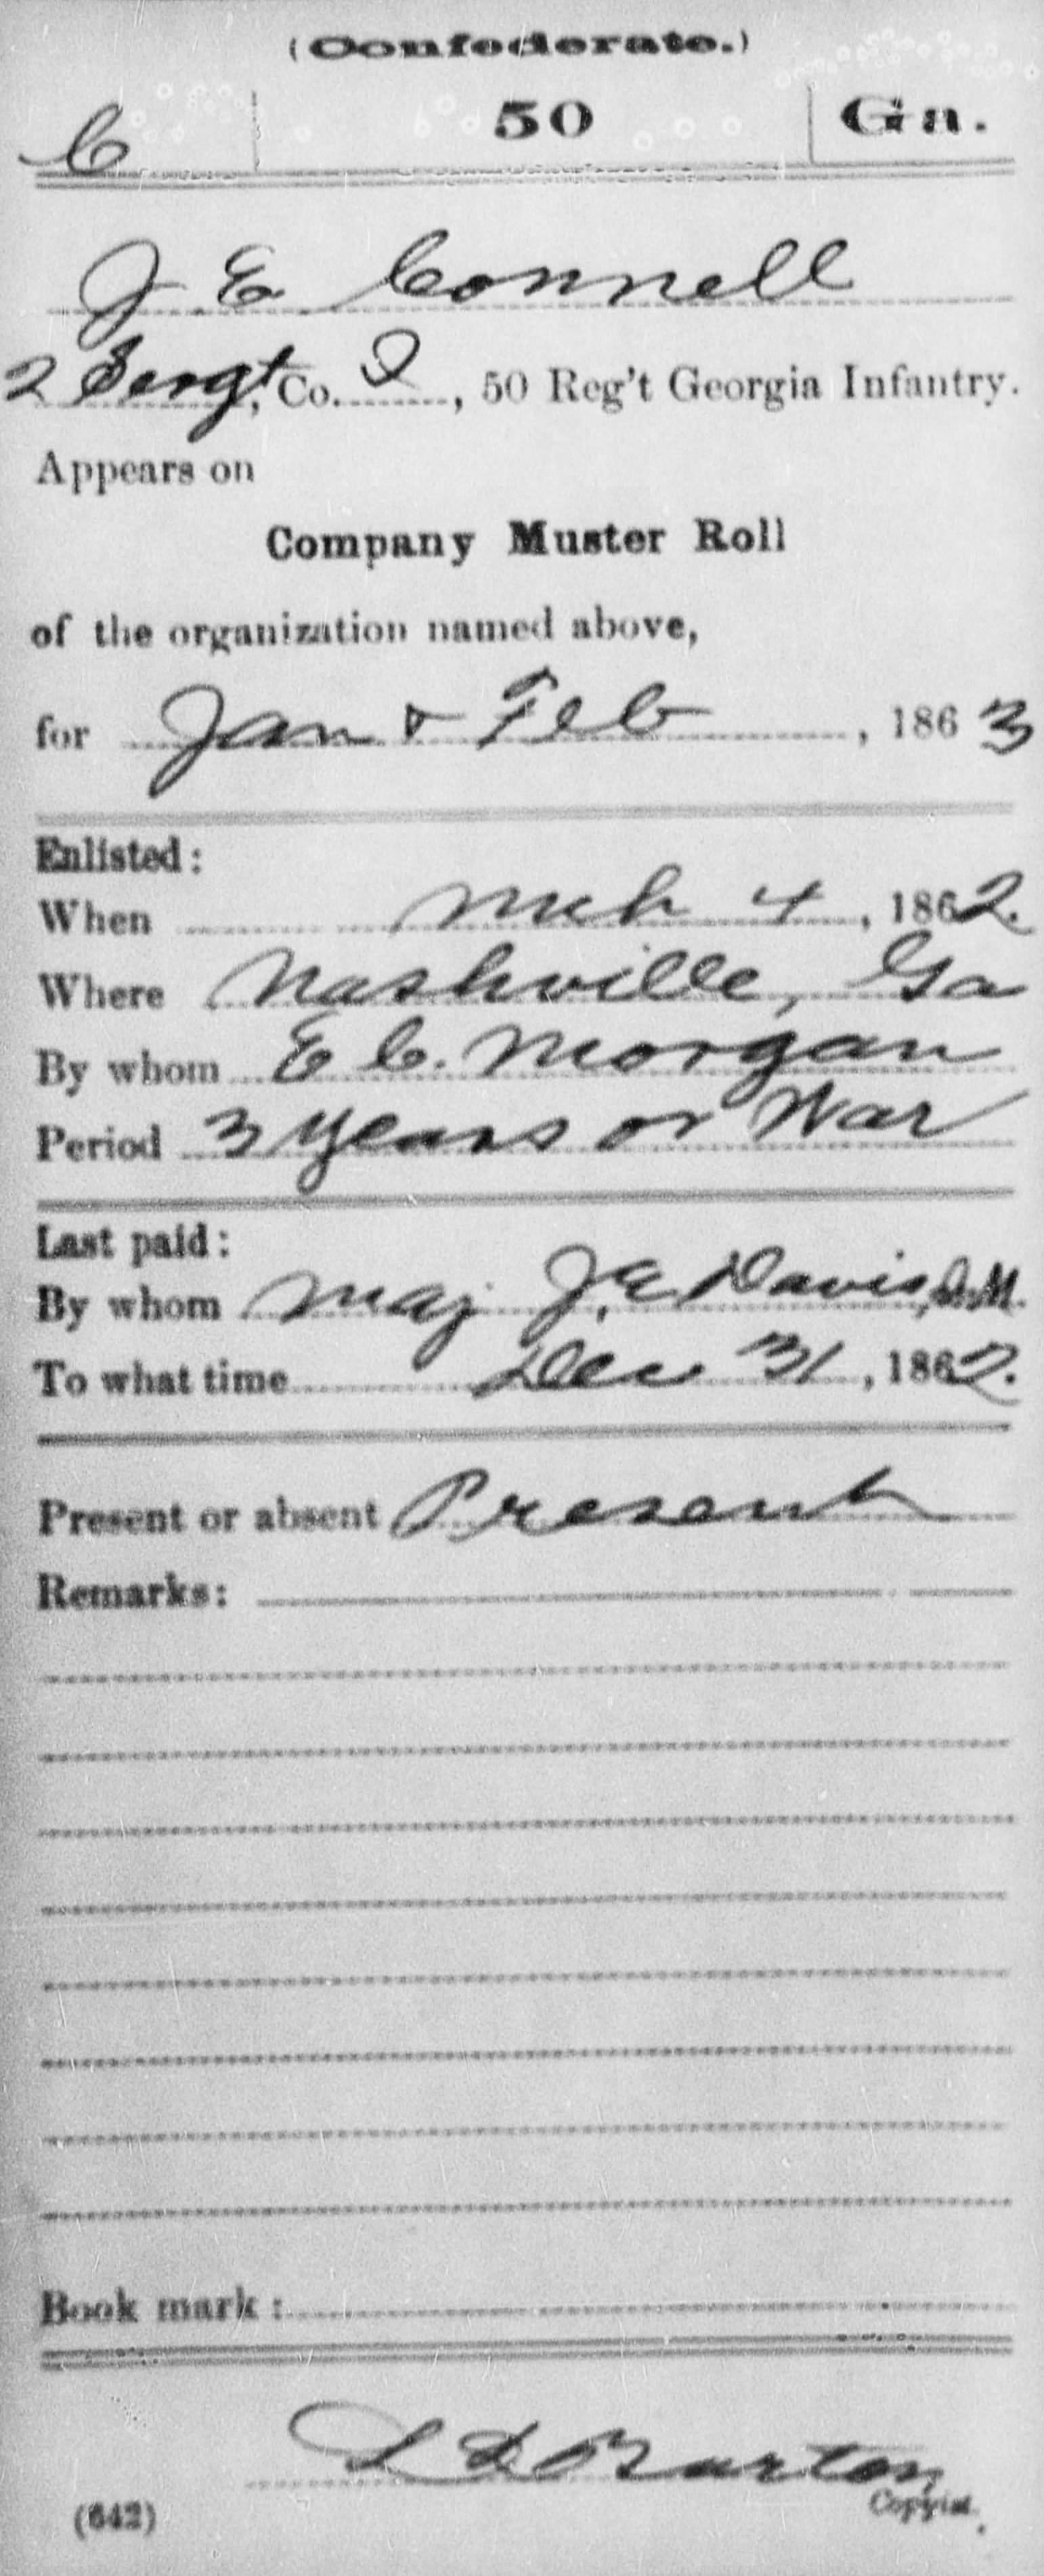 (Confederate.)
C 50 Ga.
J E Connell
2 Sergt, Co. I, 50 Reg't Georgia Infantry.
Appears on
Company Muster Roll
of the organization named above,
for Jan & Feb, 1863
Enlisted:
When Mch 4, 1862.
Where Nashville, Ga
By whom E C. Morgan
Period 3 years or War
Last paid:
By whom Maj J. E Davis, Q.M.
To what time Dec 31, 1862.
Present or absent Present
Remarks:
Book mark:
Barton
(642) Copyist.